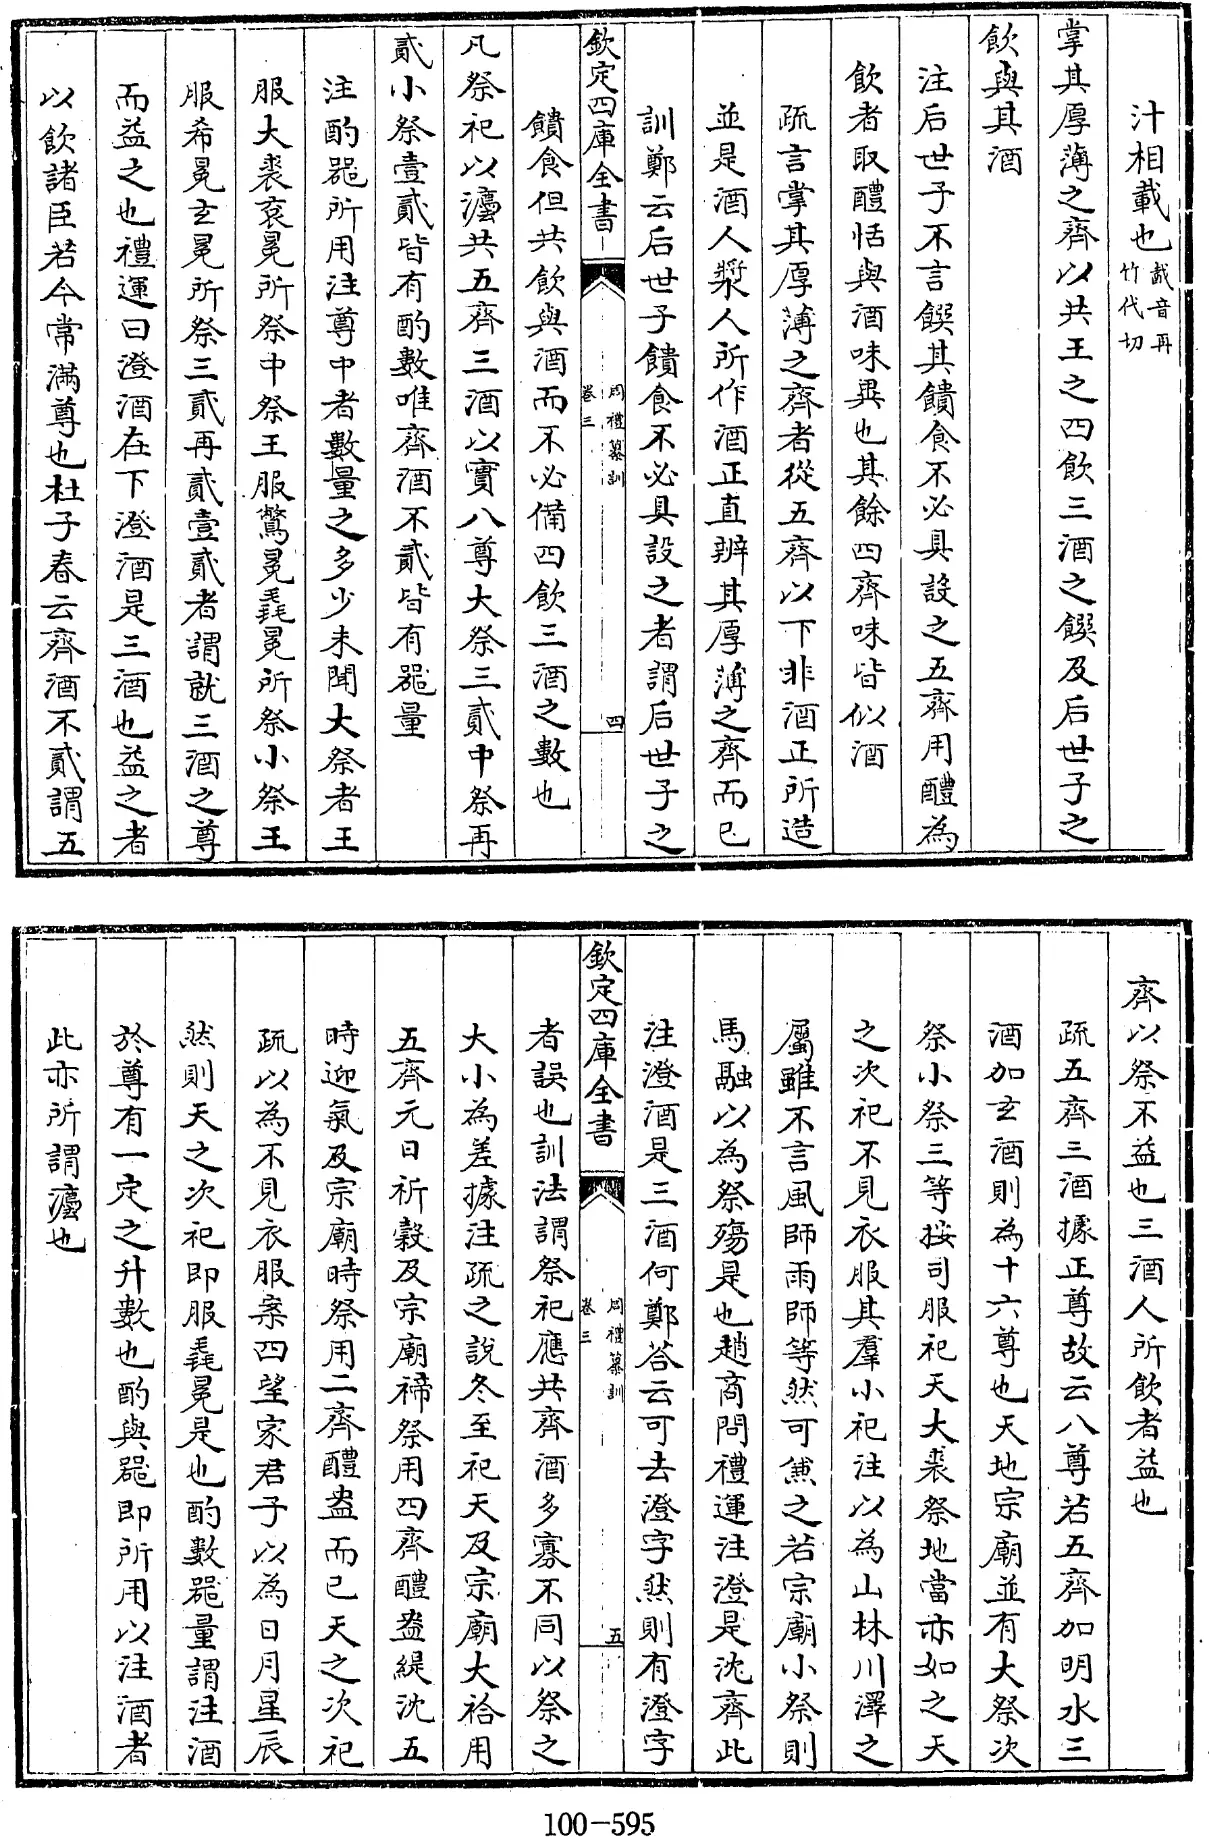 汁相載也酨音再竹代切
掌其厚薄之齊以共王之四飲三酒之饌及后世子之
飲與其酒
注后世子不言饌其饋食不必具設之五齊用醴為
飲者取醴恬與酒味異也其餘四齊味皆似酒
疏言掌其厚薄之齊者從五齊以下非酒正所造
並是酒人漿人所作酒正直辨其厚薄之齊而已
訓鄭云后世子饋食不必具設之者謂后世子之
欽定四庫全書
周禮纂訓
卷三
四
饋食但共飲與酒而不必備四飲三酒之數也
凡祭祀以灋共五齊三酒以實八尊大祭三貳中祭再
貳小祭壹貳皆有酌數唯齊酒不貳皆有器量
注酌器所用注尊中者數量之多少未聞大祭者王
服大裘袞冕所祭中祭王服鷩冕毳冕所祭小祭王
服希冕玄冕所祭三貳再貳壹貳者謂就三酒之尊
而益之也禮運曰澄酒在下澄酒是三酒也益之者
以飲諸臣若今常滿尊也杜子春云齊酒不貳謂五
齊以祭不益也三酒人所飲者益也
疏五齊三酒據正尊故云八尊若五齊加明水三
酒加玄酒則為十六尊也天地宗廟並有大祭次
祭小祭三等按司服祀天大裘祭地當亦如之天
之次祀不見衣服其羣小祀注以為山林川澤之
屬雖不言風師雨師等然可兼之若宗廟小祭則
馬融以為祭殤是也趙商問禮運注澄是沈齊此
注澄酒是三酒何鄭荅云可去澄字然則有澄字
欽定四庫全書
周禮纂訓
卷三
五
者誤也訓法謂祭祀應共齊酒多寡不同以祭之
大小為差據注疏之說冬至祀天及宗廟大祫用
五齊元日祈穀及宗廟禘祭用四齊醴盎緹沈五
時迎氣及宗廟時祭用二齊醴盎而已天之次祀
疏以為不見衣服案四望家君子以為日月星辰
然則天之次祀即服毳冕是也酌數器量謂注酒
於尊有一定之升數也酌與器即所用以注酒者
此亦所謂灋也
100-595